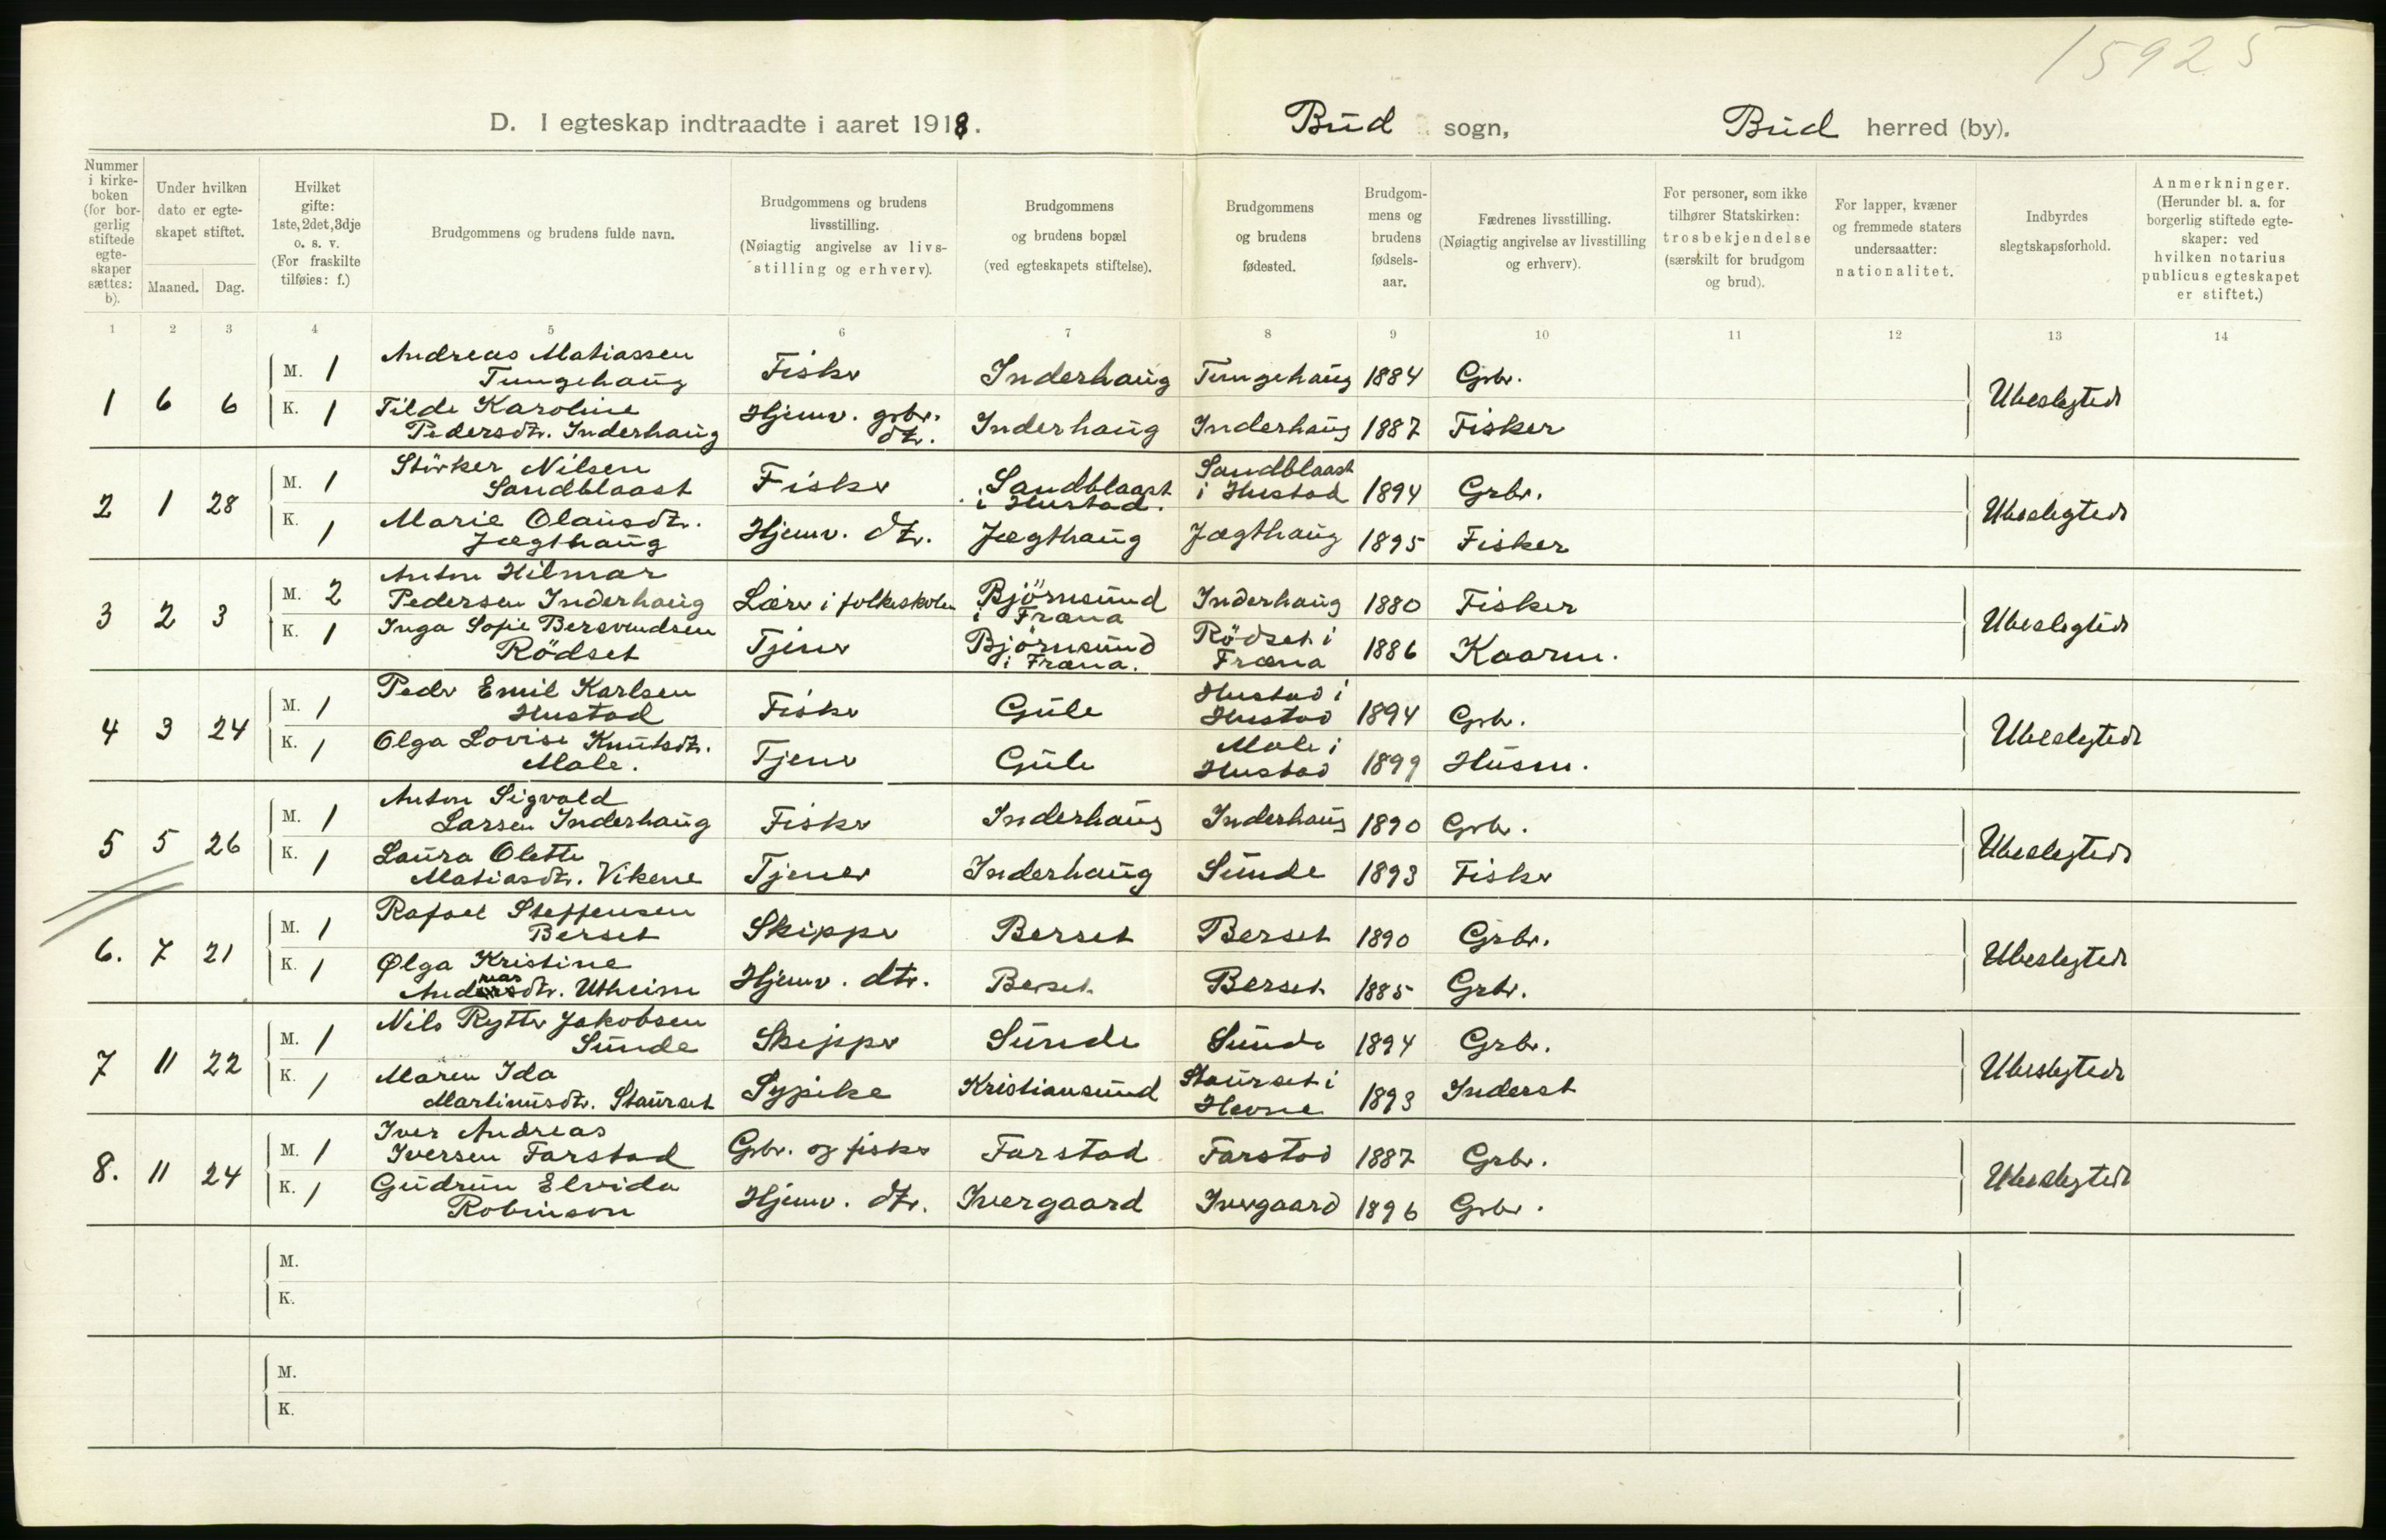 15925
D. I egteskap indtraadte i aaret 1918. Bud sogn, Bud herred (by).
Nummer i kirkeboken (for borgerlig stiftede egteskaper sættes: b).
Under hvilken dato er egteskapet stiftet.
Maaned. Dag.
Hvilket gifte: 1ste, 2det, 3dje o. s. v. (For fraskilte tilføies: f.)
Brudgommens og brudens fulde navn.
Brudgommens og brudens livsstilling. (Nøiagtig angivelse av livsstilling og erhverv).
Brudgommens og brudens bopæl (ved egteskapets stiftelse).
Brudgommens og brudens fødested.
Brudgommens og brudens fødselsaar.
Fædrenes livsstilling. (Nøiagtig angivelse av livsstilling og erhverv).
For personer, som ikke tilhører Statskirken: trosbekjendelse (særskilt for brudgom og brud).
For lapper, kvæner og fremmede staters undersaatter: nationalitet.
Indbyrdes slegtskapsforhold.
Anmerkninger. (Herunder bl. a. for borgerlig stiftede egteskaper: ved hvilken notarius publicus egteskapet er stiftet.)
1 2 3 4 5 6 7 8 9 10 11 12 13 14
1 6 6 M. 1 Andreas Matiassen Tungehaug Fisker Inderhaug Tungehaug 1884 Grbr. Ubeslegtede
K. 1 Tilde Karoline Pedersdtr. Inderhaug Hjemv. grbr. dtr. Inderhaug Inderhaug 1887 Fisker
2 1 28 M. 1 Störker Nilsen Sandblaast Fisker Sandblaast i Hustad. Sandblaast i Hustad 1894 Grbr. Ubeslegtede
K. 1 Marie Olausdtr. Jægthaug Hjemv. dtr. Jægthaug Jægthaug 1895 Fisker
3 2 3 M. 2 Anton Hilmar Pedersen Inderhaug Lærer i folkeskolen Björnsund i Fræna Inderhaug 1880 Fisker Ubeslegtede
K. 1 Inga Sofie Bersvendsen Rödset Tjener Björnsund i Fræna. Rödset i Fræna 1886 Kaarm.
4 3 24 M. 1 Peder Emil Karlsen Hustad Fisker Gule Hustad i Hustad 1894 Grb. Ubeslegtede
K. 1 Olga Lovise Knutsdtr. Male. Tjener Gule Male i Hustad 1899 Husm.
5 5 26 M. 1 Anton Sigvald Larsen Inderhaug Fisker Inderhaug Inderhaug 1890 Grbr. Ubeslegtede
K. 1 Laura Olette Matiasdtr. Vikene Tjener Inderhaug Sunde 1893 Fisker
6. 7 21 M. 1 Rafael Steffensen Berset Skipper Berset Berset 1890 Grbr. Ubeslegtede
K. 1 Olga Kristine Andreasdtr. Utheim Hjemv. dtr. Berset Berset 1885 Grbr.
7 11 22 M. 1 Nils Rytter Jakobsen Sunde Skipper Sunde Sunde 1894 Grbr. Ubeslegtede
K. 1 Maren Ida Martinusdtr. Stauset Sypike Kristiansund Stauset i Hevne 1893 Inderst
8. 11 24 M. 1 Iver Andreas Iversen Farstad Grbr. og fisker Farstad Farstad 1887 Grbr. Ubeslegtede
K. 1 Gudrun Elvida Robinson Hjemv. dtr. Ivergaard Ivergaard 1896 Grbr.
M.
K.
M.
K.